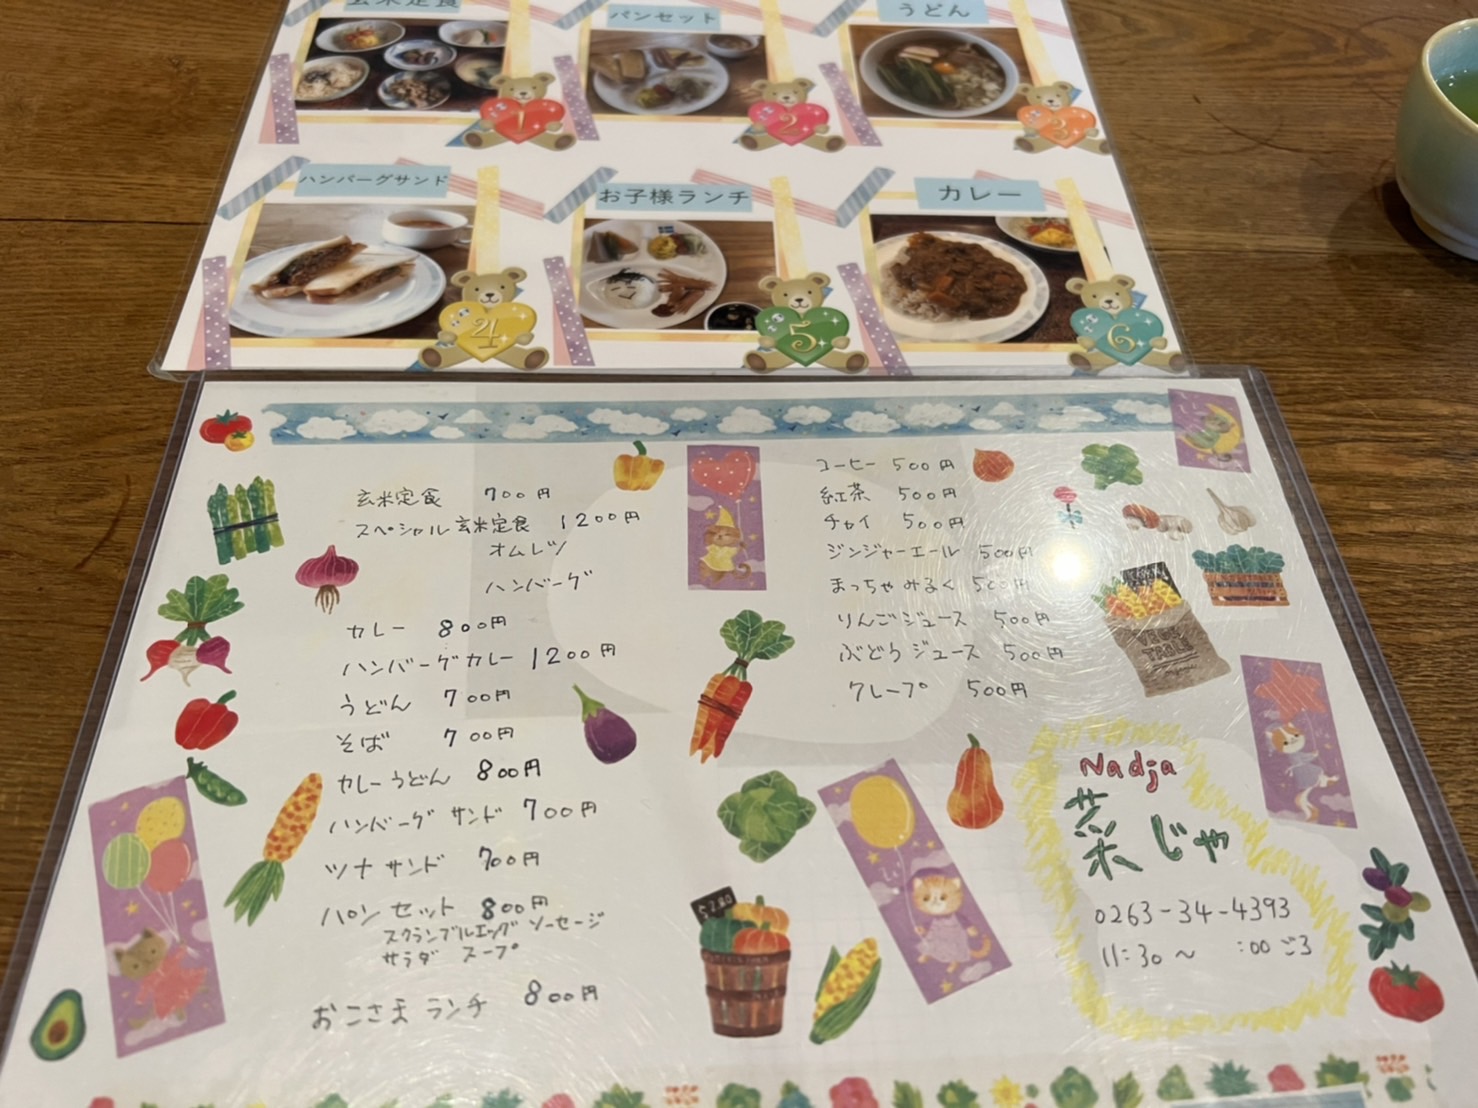 玄米定食
パンセット
うどん
1
2
3
ハンバーグサンド
お子様ランチ
カレー
4
5
6
玄米定食 700円
スペシャル玄米定食 1200円
オムレツ
ハンバーグ
カレー 800円
ハンバーグカレー 1200円
うどん 700円
そば 700円
カレーうどん 800円
ハンバーグ サンド 700円
ツナ サンド 700円
パン セット 800円
スクランブルエッグ ソーセージ
サラダ スープ
おこさま ランチ 800円
コーヒー 500円
紅茶 500円
チャイ 500円
ジンジャーエール 500円
まっちゃみるく 500円
りんごジュース 500円
ぶどうジュース 500円
クレープ 500円
TABLE
Nadja
菜じゃ
0263-34-4393
11:30～ :00ごろ